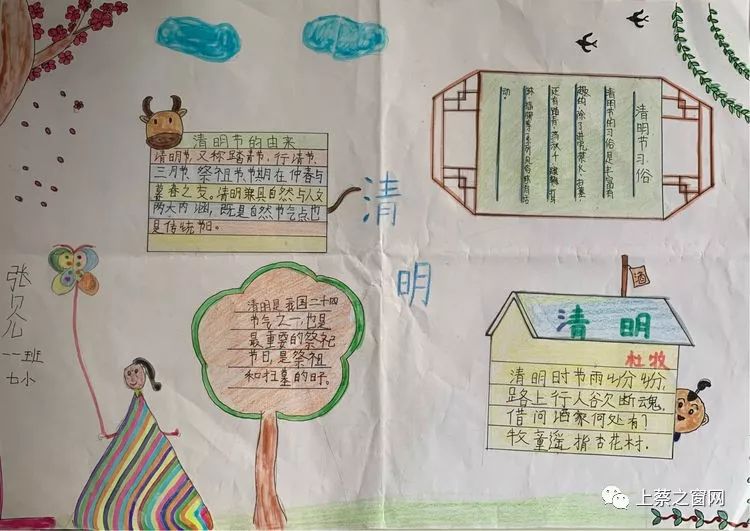 清明节的由来
清明节,又称踏青节、行清节、
三月节、祭祖节,节期在仲春与
暮春之交。清明兼具自然与人文
两大内涵,既是自然节气点也
是传统节日。
清
明
清明节习俗
清明节的习俗是丰富有
趣的,除了
动。
张
一一班
七小
清明是我国二十四
节气之一,也是
最重要的祭祀
节日,是祭祖
和扫墓的日子。
酒
清明
杜牧
清明时节雨纷纷,
路上行人欲断魂,
借问酒家何处有?
牧童遥指杏花村.
上蔡之窗网